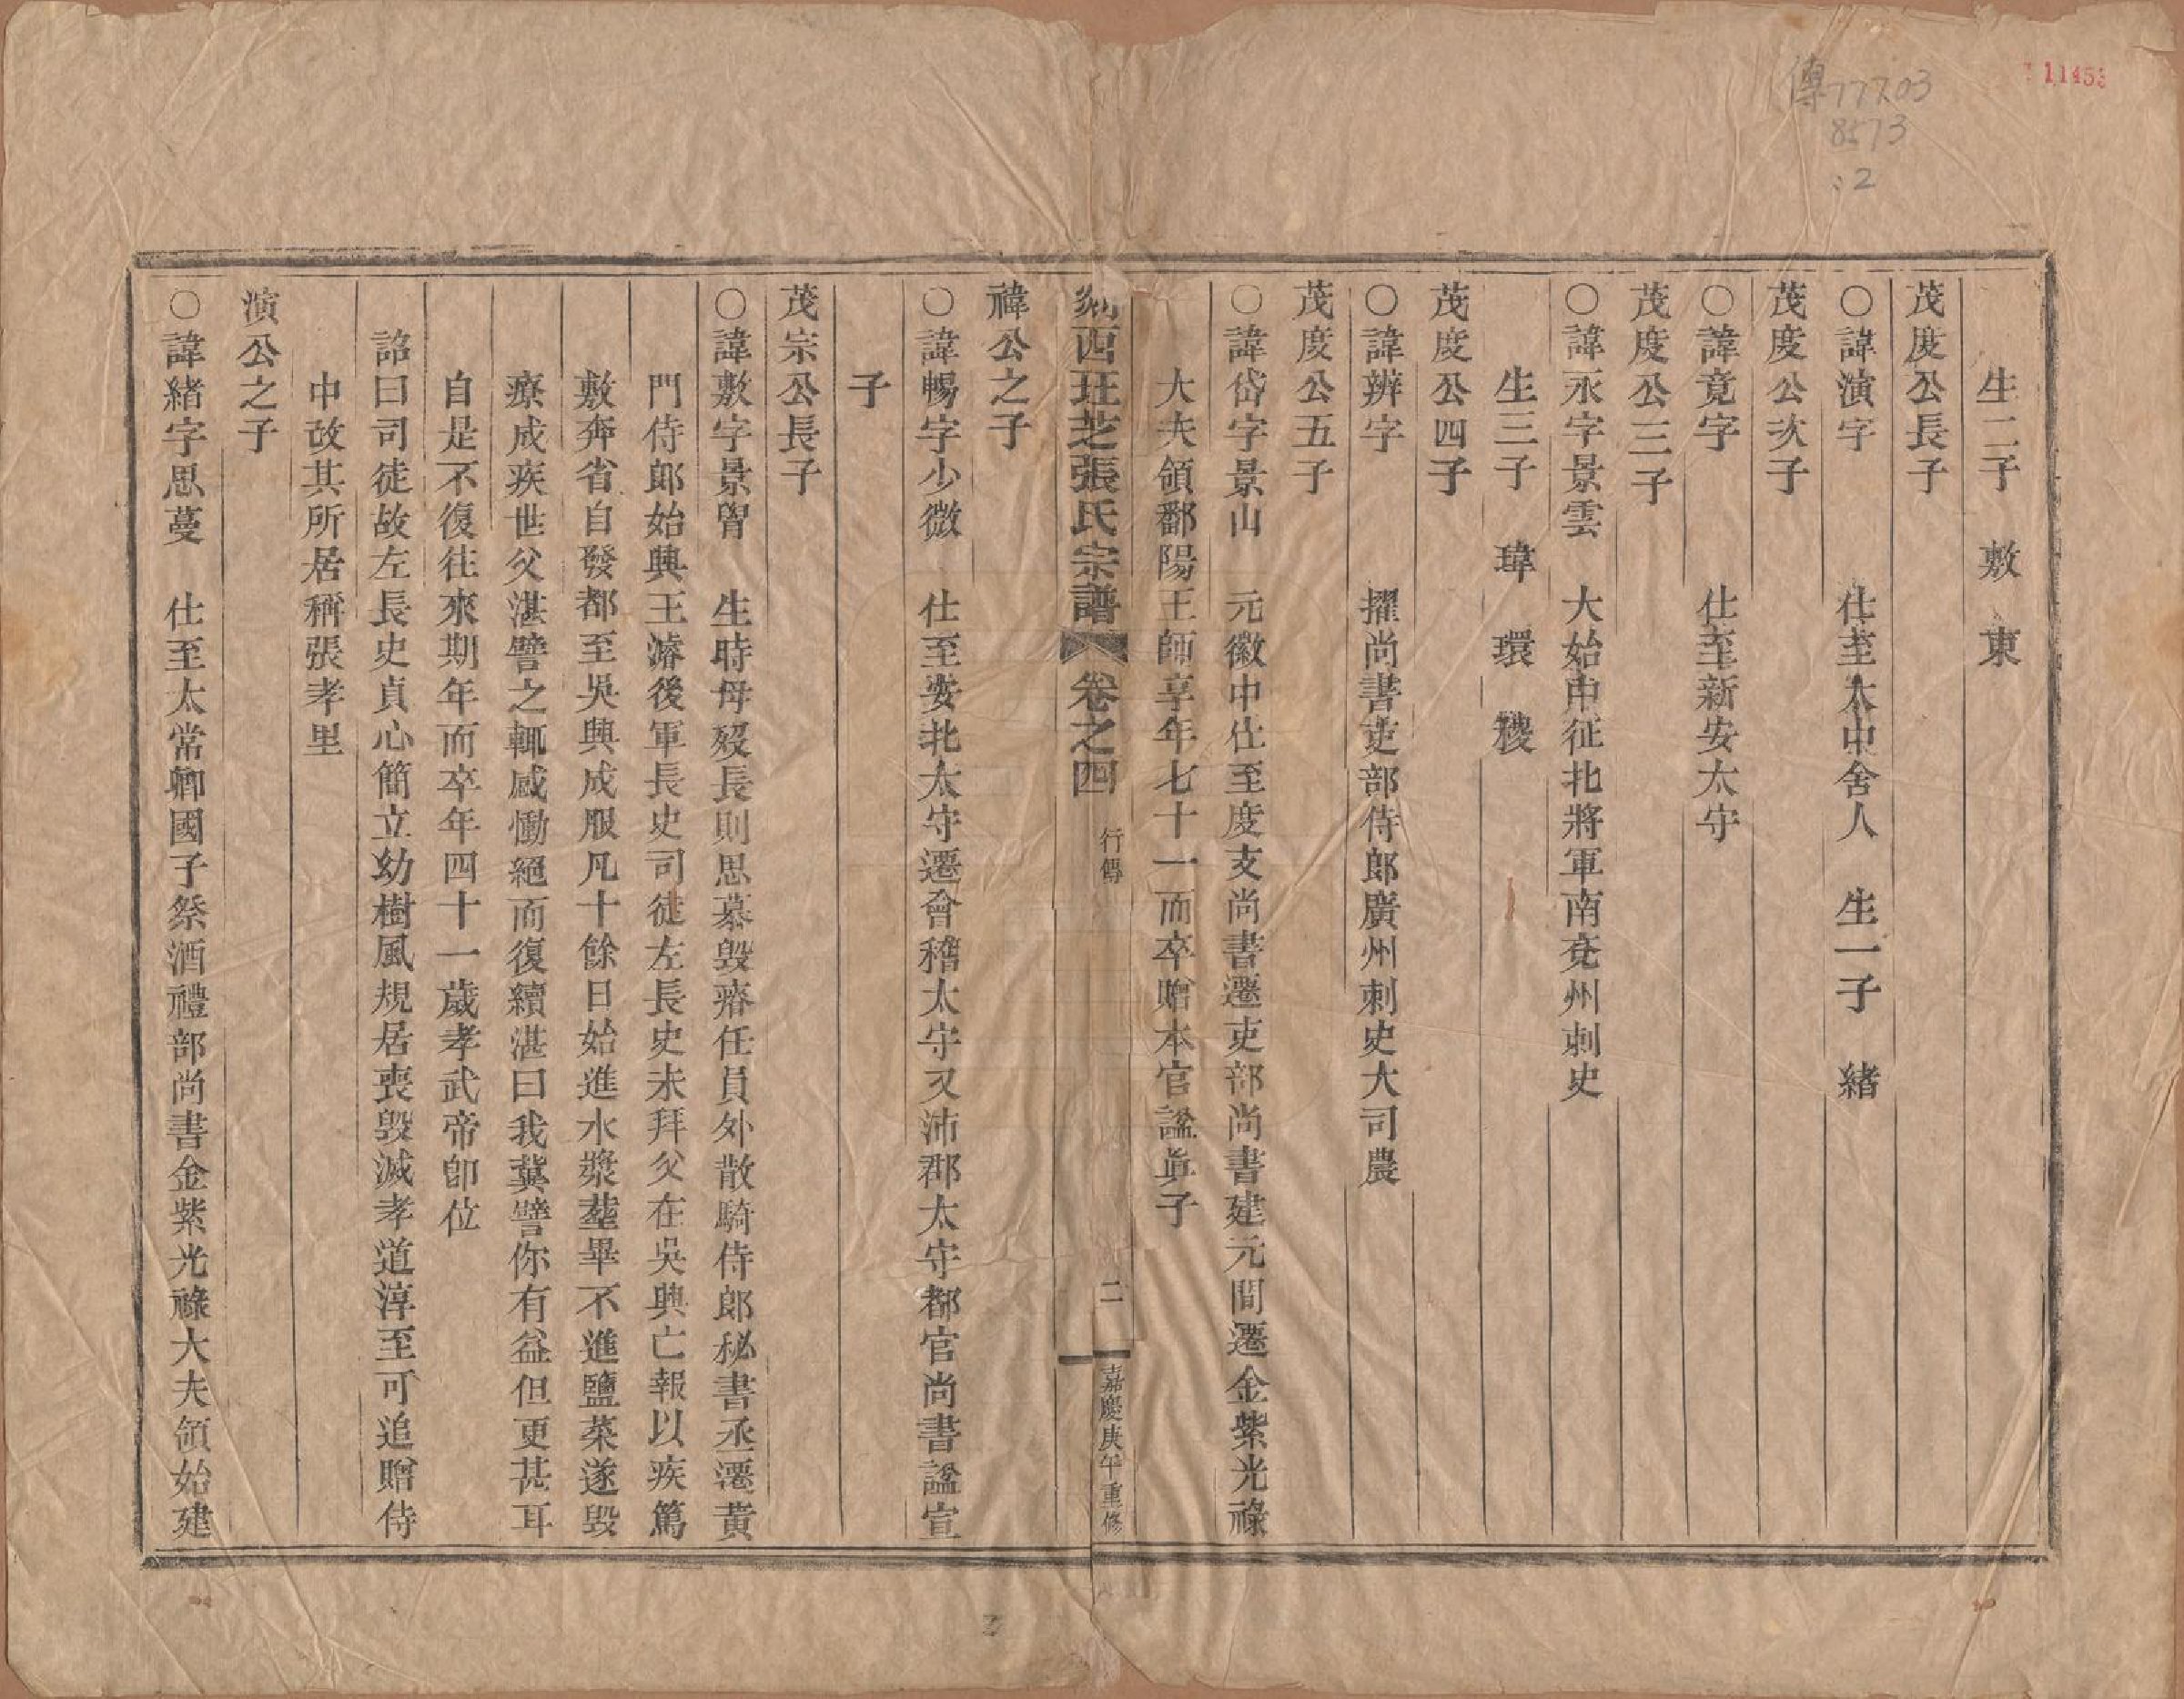 11453
傳 777.03
8573
:2
生二子 敷 東
茂度公長子
○諱演字 仕至太中舍人 生一子 緒
茂度公次子
○諱竟字 仕至新安太守
茂度公三子
○諱永字景雲 大始中征北將軍南兗州刺史
生三子 瑋 環 稷
茂度公四子
○諱辨字 擢尚書吏部侍郎廣州刺史大司農
茂度公五子
○諱岱字景山 元徽中仕至度支尚書遷吏部尚書建元間遷金紫光祿
大夫領鄱陽王師享年七十一而卒贈本官謚眞子
剡西珏芝張氏宗譜 卷之四 行傳 二 嘉慶庚午重修
禕公之子
○諱暢字少微 仕至安北太守遷會稽太守又沛郡太守都官尚書謚宣
子
茂宗公長子
○諱敷字景胤 生時母歿長則思慕毀瘠任員外散騎侍郎秘書丞遷黃
門侍郎始興王濬後軍長史司徒左長史未拜父在吳興亡報以疾篤
敷奔省自發都至吳興成服凡十餘日始進水漿塟畢不進鹽菜遂毀
療成疾世父湛譬之輒感慟絕而復續湛曰我冀譬你有益但更甚耳
自是不復往來期年而卒年四十一歲孝武帝卽位
詔曰司徒故左長史貞心簡立幼樹風規居喪毀滅孝道淳至可追贈侍
中故其所居稱張孝里
演公之子
○諱緒字思蔓 仕至太常卿國子祭酒禮部尚書金紫光祿大夫領始建
2